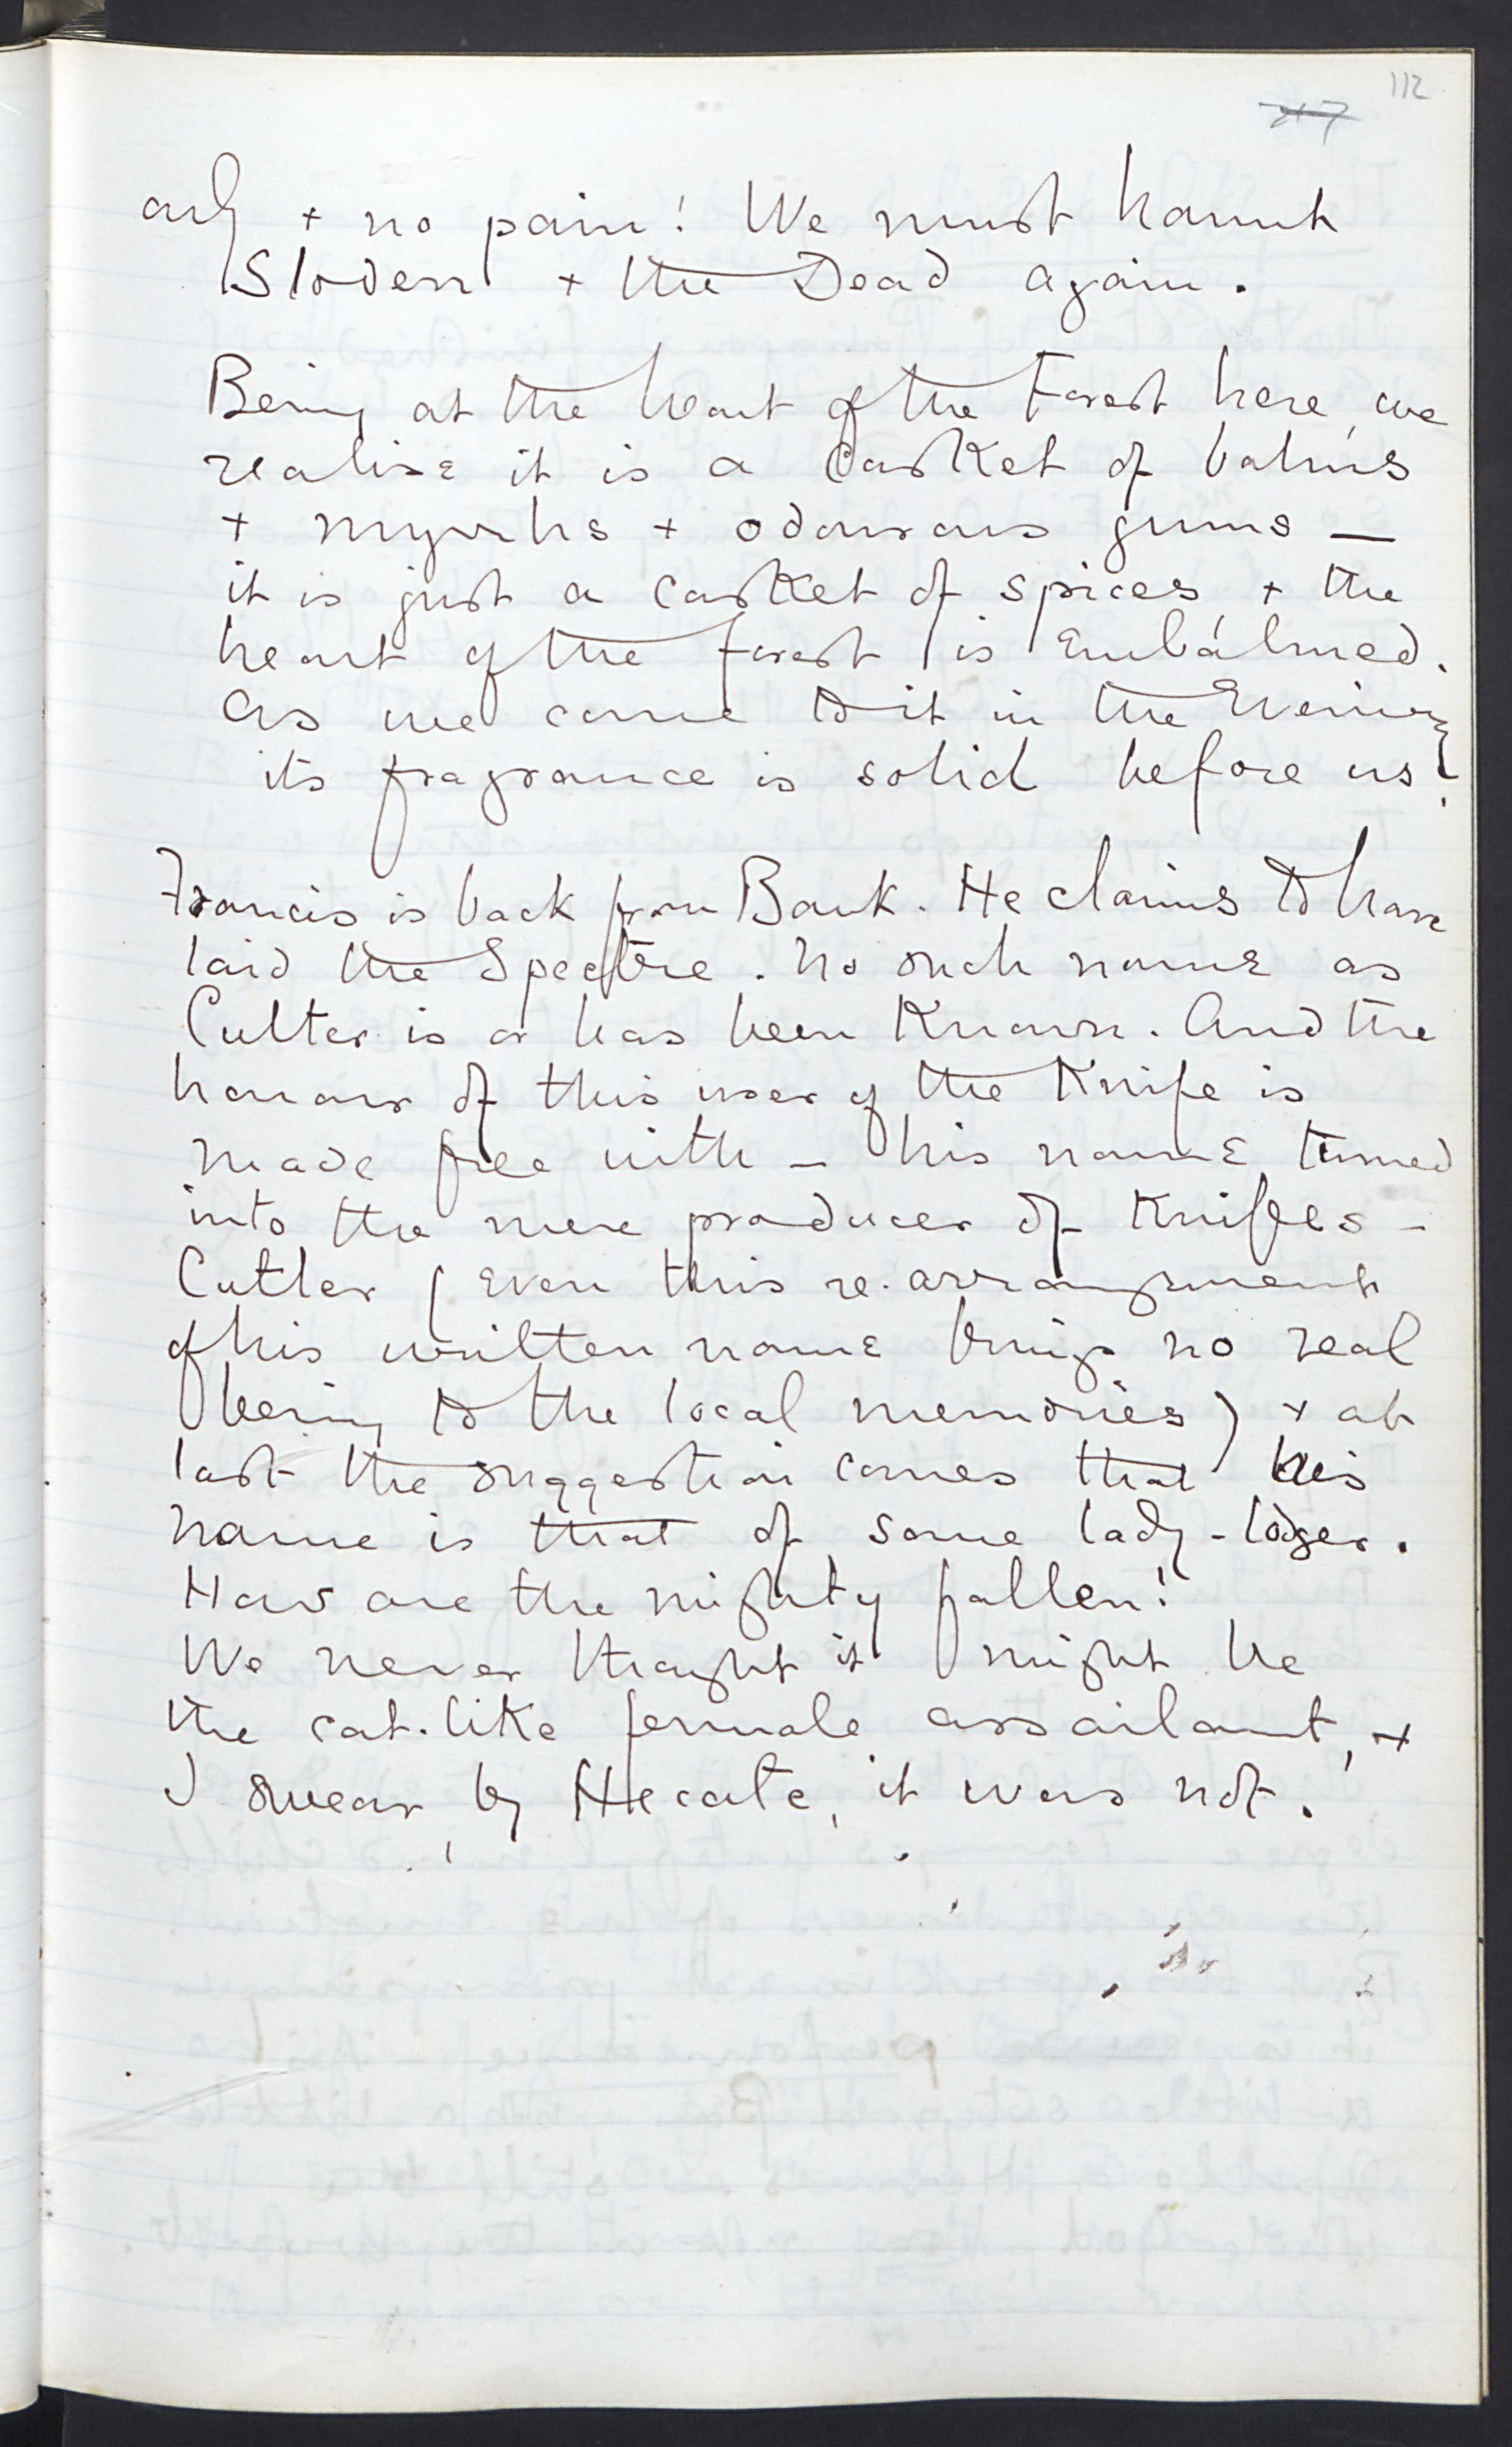 112
only + no pain! We must haunt
Sloden + the Dead again.
Being at the heart of the Forest here, we
realise it is a Casket of balms
+ myrrhs + odourous gums —
it is just a casket of spices, + the
heart of the forest is Embalmed.
As we come to it in the Evening
its fragrance is solid before us!
Francis is back from Bank. He claims to have
laid the Spectre. No such name as
Culter is or has been Known. And the
honour of this user of the Knife is
made free with — his name turned
into the mere producer of Knifes —
Cutler (Even this re-arrangement
of his written name brings no real
being to the local memories) + at
last the suggestion comes that his
name is that of some lady-lodger.
How are the mighty fallen!
We never thought it might be
the cat-like female assailant, +
I swear, by Hecate, it was not!